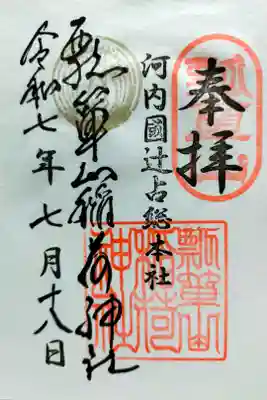 奉拝
河内國辻占総本社
瓢箪山稲荷神社
令和七年七月十八日
瓢箪山
稲荷
神社